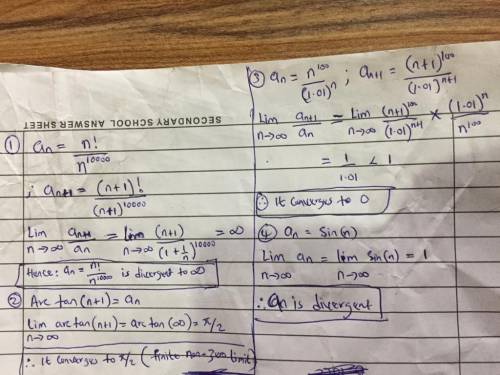 SECONDARY SCHOOL ANSWER SHEET
① an = n! / n^10000
; an+1 = (n+1)! / (n+1)^10000
Lim n→∞ an+1 / an = lim n→∞ (n+1) / (1 + 1/n)^10000 = ∞
Hence: an = n! / n^10000 is divergent to ∞
② Arc tan(n+1) = an
Lim n→∞ arc tan(n+1) = arc tan(∞) = π/2
∴ It converges to π/2 (finite limit)
③ an = n^100 / (1.01)^n ; an+1 = (n+1)^100 / (1.01)^n+1
Lim n→∞ an+1 / an = Lim n→∞ (n+1)^100 / (1.01)^n+1 × (1.01)^n / n^100
= 1 / 1.01 < 1
∴ It converges to 0
④ an = Sin(n)
Lim n→∞ an = lim n→∞ Sin(n) = 1
∴ an is divergent